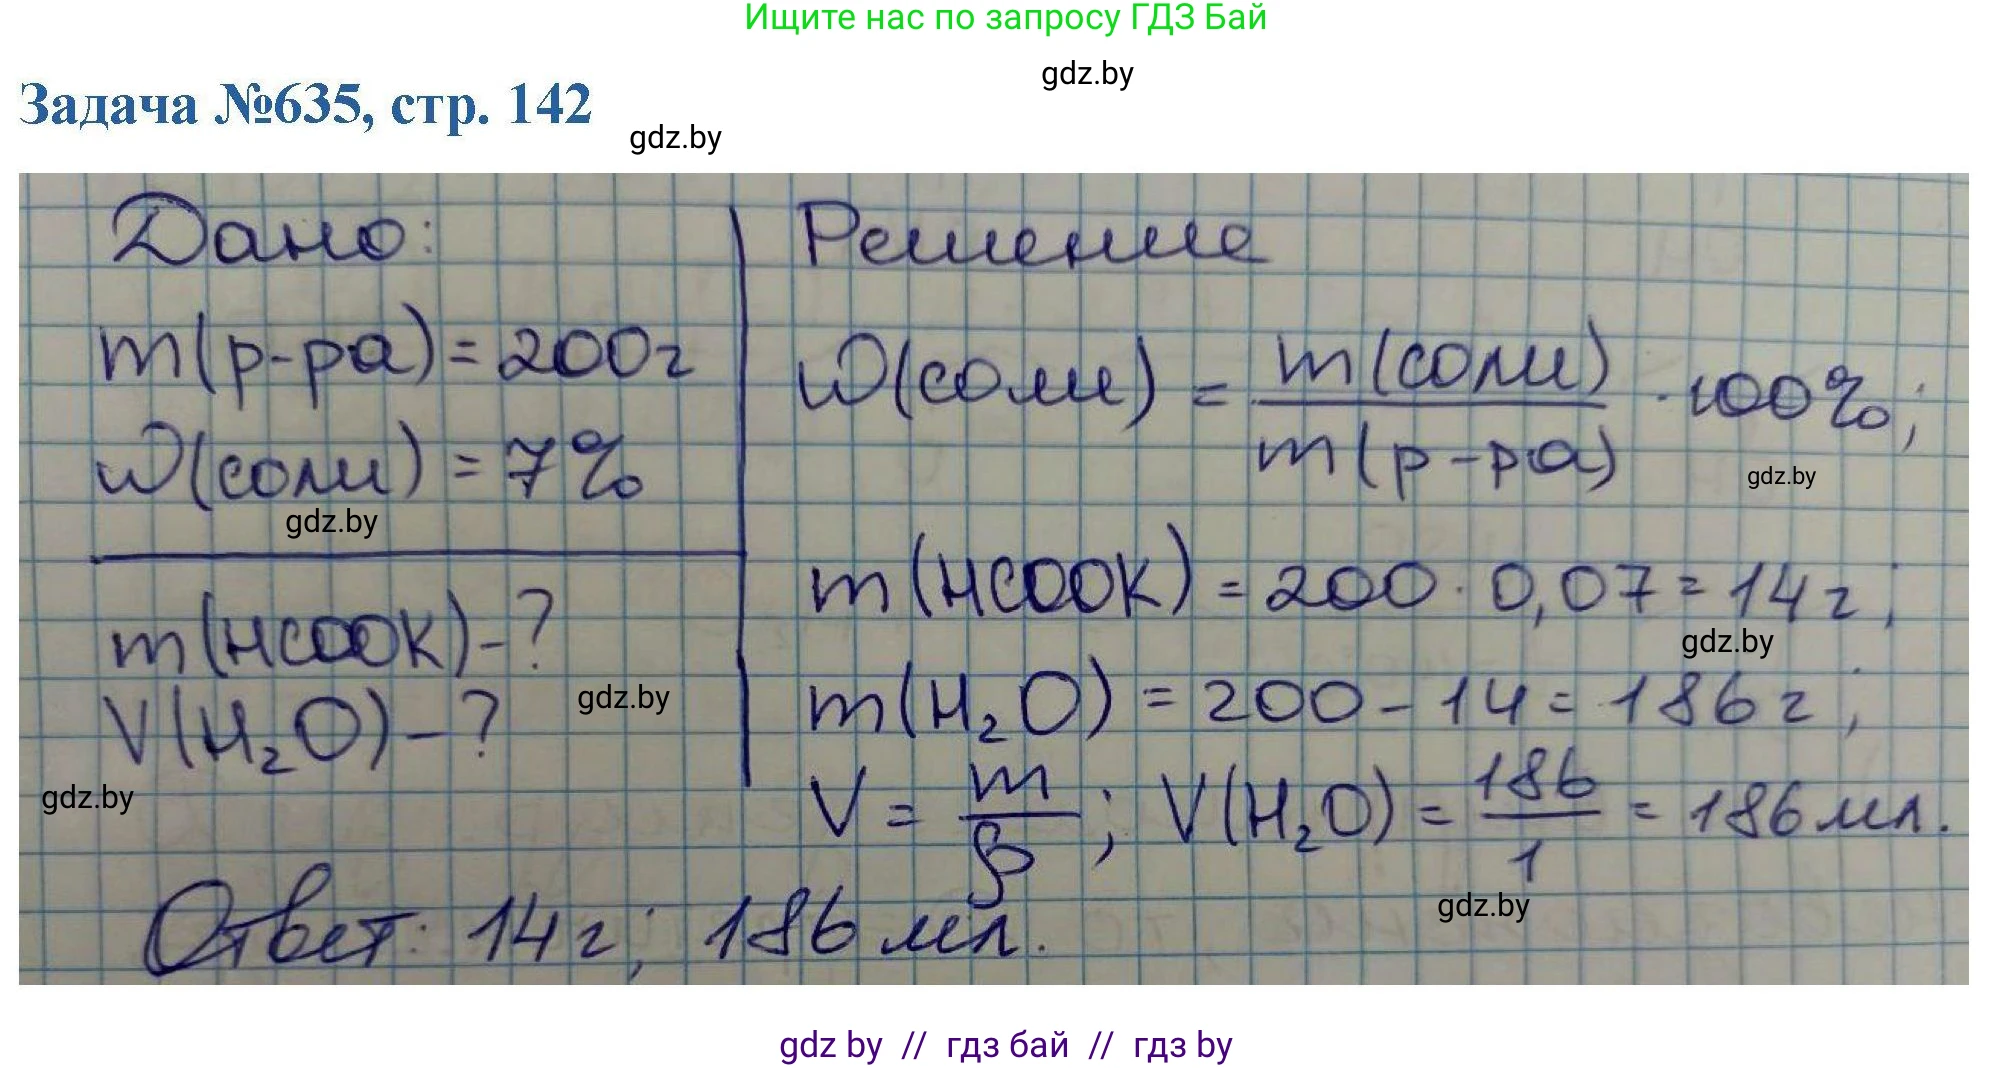 Ищите нас по запросу ГДЗ Бай
gdz.by
Задача №635, стр. 142
gdz.by
Дано:
m(р-ра) = 200г
ω(соли) = 7%
gdz.by
m(HCOOK) - ?
V(H₂O) - ?
gdz.by
gdz.by
Решение
ω(соли) = m(соли) / m(р-ра) · 100%;
gdz.by
m(HCOOK) = 200 · 0,07 = 14г;
gdz.by
m(H₂O) = 200 - 14 = 186г;
V = m/ρ; V(H₂O) = 186/1 = 186мл.
gdz.by
Ответ: 14г; 186мл.
gdz by // гдз бай // гдз by